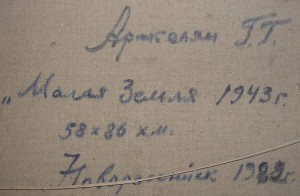 Аракелян Г.Г.
„Малая Земля 1943г.
58х86 хм.
Новороссийск 1982г.